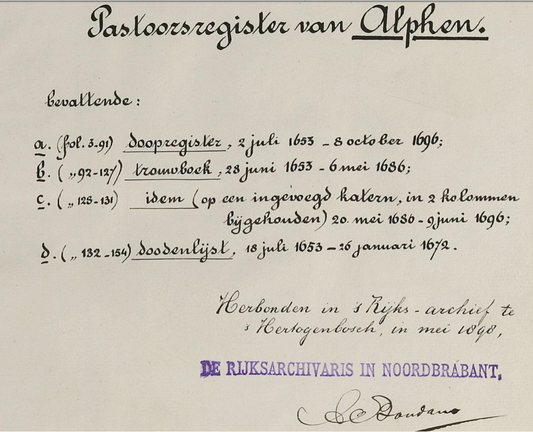 Pastoorsregister van Alphen.
bevattende:
a. (fol. 3-91) doopregister, 2 juli 1653 - 8 october 1696;
b. ( „ 92-127) trouwboek, 28 juni 1653 - 6 mei 1686;
c. ( „ 128-131) idem (op een ingevoegd katern, in 2 kolommen
bijgehouden) 20 mei 1686 - 9 juni 1696;
d. ( „ 132-154) doodenlijst, 18 juli 1653 - 26 januari 1672.
Herbonden in 's Rijks-archief te
's Hertogenbosch, in mei 1898,
DE RIJKSARCHIVARIS IN NOORDBRABANT,